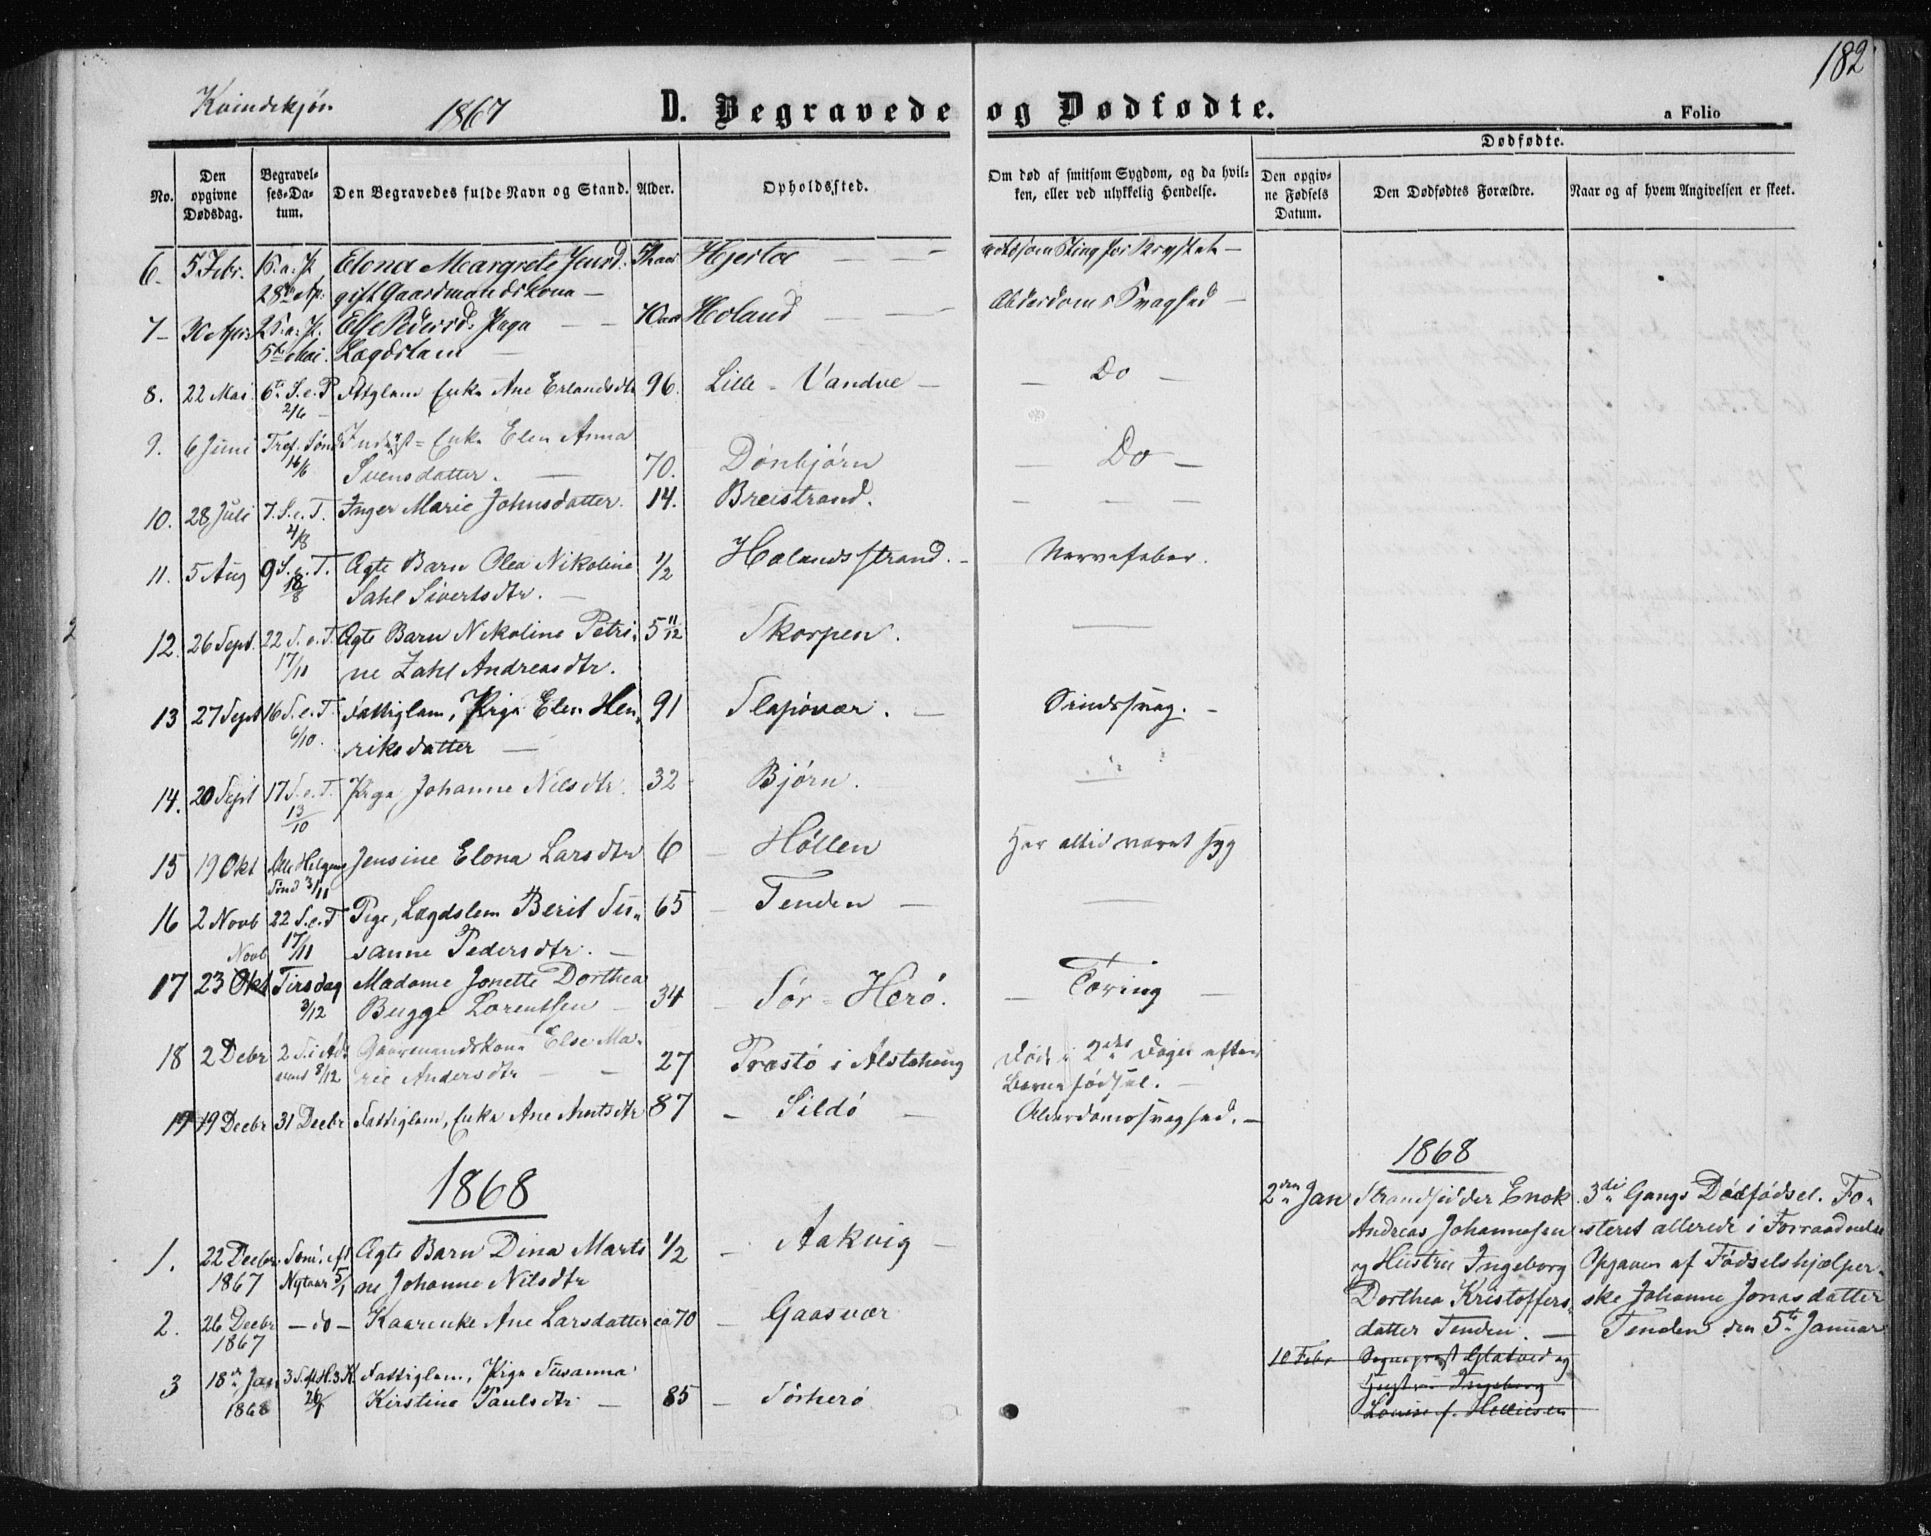 182
Kvindekjøn
1867
D. Begravede og Dødfødte.
a Folio
Dødfødte.
No.
Den opgivne Dødsdag.
Begravelses-Datum.
Den Begravedes fulde Navn og Stand.
Alder.
Opholdssted.
Om død af smitsom Sygdom, og da hvilken, eller ved ulykkelig Hendelse.
Den opgivne Fødsels Datum.
Den Dødfødtes Forældre.
Naar og af hvem Angivelsen er skeet.
6. 5 Febr. Elona Margrete Hjertøe
28de Ap. gift Gaardmandskona —
7- 30 Apr. 2 S. a. P. Else Pedersd. Piga 70 aar Høland Alderdoms Svaghed —
5te Mai. Lægdslam —
8. 22 Mai 6te S. e. P Fattiglem Enke Ane Erlandsdtr 96. Lille-Vandve — — Do —
2/6
9. 6 Juni Tref. Sønd Inderst-Enke Elen Anna
16/6 Svensdatter. — 70. Dønbjørn — Do —
10. 28 Juli 7. S. e. T. Inger Marie Johnsdatter. 14. Breistrand. — — —
4/8
11. 5 Aug 9 S. e. T. Ægte Barn Olea Nikoline 1/2 Hølandsstrand. — Nervefeber.
18/8 Sahl Sivertsdtr. —
12. 26 Sept. 22 S. e. T. Ægte Barn Nikoline Petri- 5 11/12 Skorpen. —
17/11 ne Zahl Andreasdtr.
13 27 Sept 16 S. e. T. Fattiglem, Piga Elen Hen- 91 Slapøvær. — Sindssvag. —
6/10. riksdatter —
14. 20 Sept 17 S. e. T. Piga Johanne Nilsdtr. 32 Bjørn.
13/10
15 19 Okt Alle Helgens Jensine Elona Larsdtr 6 — Høllen Har altid været syg
Sønd 3/11
16 2 Novb 22 S. e. T Pige, Lægdslem Berit Su- 65 — Tenden —
17/11 sanne Pedersdtr. —
Novb
17 23 Okt Tirsdag Madame Jonette Dorthea
3/12 Bugge Lorentsen — 34 — Sør-Herø. — Tæring —
18 2 Decbr 2 S. i Ad- Gaarmandskone Else Ma-
vent 8/12 rie Andersdtr — — 27 Præstø i Alstahoug Døde 2den Dagen efter
Barnefødsel. —
19 19 Decbr 31 Decbr Fattiglem, Enke Ane Arntsdtr 87 — Sildø — Alderdomssvaghed. —
1868
1. 22 Decbr. Sønd. ef. Ægte Barn Dina Marti- 1/2 — Aakvig —
1867 Nytaar 5/1 ne Johanne Nilsdtr
2. 26 Decbr — do — Kaarenke Ane Larsdatter ca 70 — Gaasvær
1867
3 18de Jan Fattiglem, Piga Susanna
1868 26/1 Kirstine Paulsdtr — 85 — Sørherø
1868
2den Jan Strandsidder Enok 3die Gangs Dødfødsel. Fo-
Andreas Johannesen steret allerede i Forraadnelse
og Hustru Ingeborg Opgaven af Fødselshjælper-
Dorthea Kristoffers- ske Johanne Jonasdatter
datter Tenden. — Tenden den 5te Januar
10 Febr Sognepræst Glatved og
Hustru Ingeborg
Louise f. Hellesen